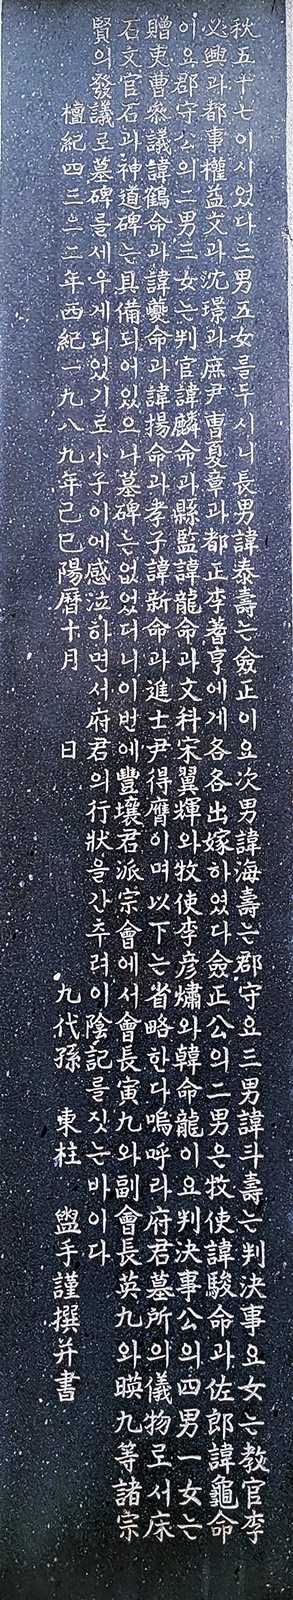 秋五十七이시었다三男五女를두시니長男諱泰壽는僉正이요次男諱海壽는郡守요三男諱斗壽는判決事요女는教官李
必興과都事權益文과沈璟과庶尹曹夏章과都正李蓍亨에게各各出嫁하였다僉正公의二男은牧使諱駿命과佐郎諱龜命
이요郡守公의二男三女는判官諱麟命과縣監諱龍命과文科宋翼輝와牧使李彦熽와韓命龍이요判決事公의四男一女는
贈吏曹參議諱鶴命과諱夔命과諱揚命과孝子諱新命과進士尹得膺이며以下는省略한다嗚呼라府君墓所의儀物로서床
石文官石과神道碑는具備되어있으나墓碑는없었더니이번에豐壤君派宗會에서會長寅九와副會長英九와暎九等諸宗
賢의發議로墓碑를세우게되었기로小子이에感泣하면서府君의行狀을간추려이陰記를짓는바이다
檀紀四三二二年西紀一九八九年己巳陽曆十月 日 九代孫 東柱 盥手謹撰并書